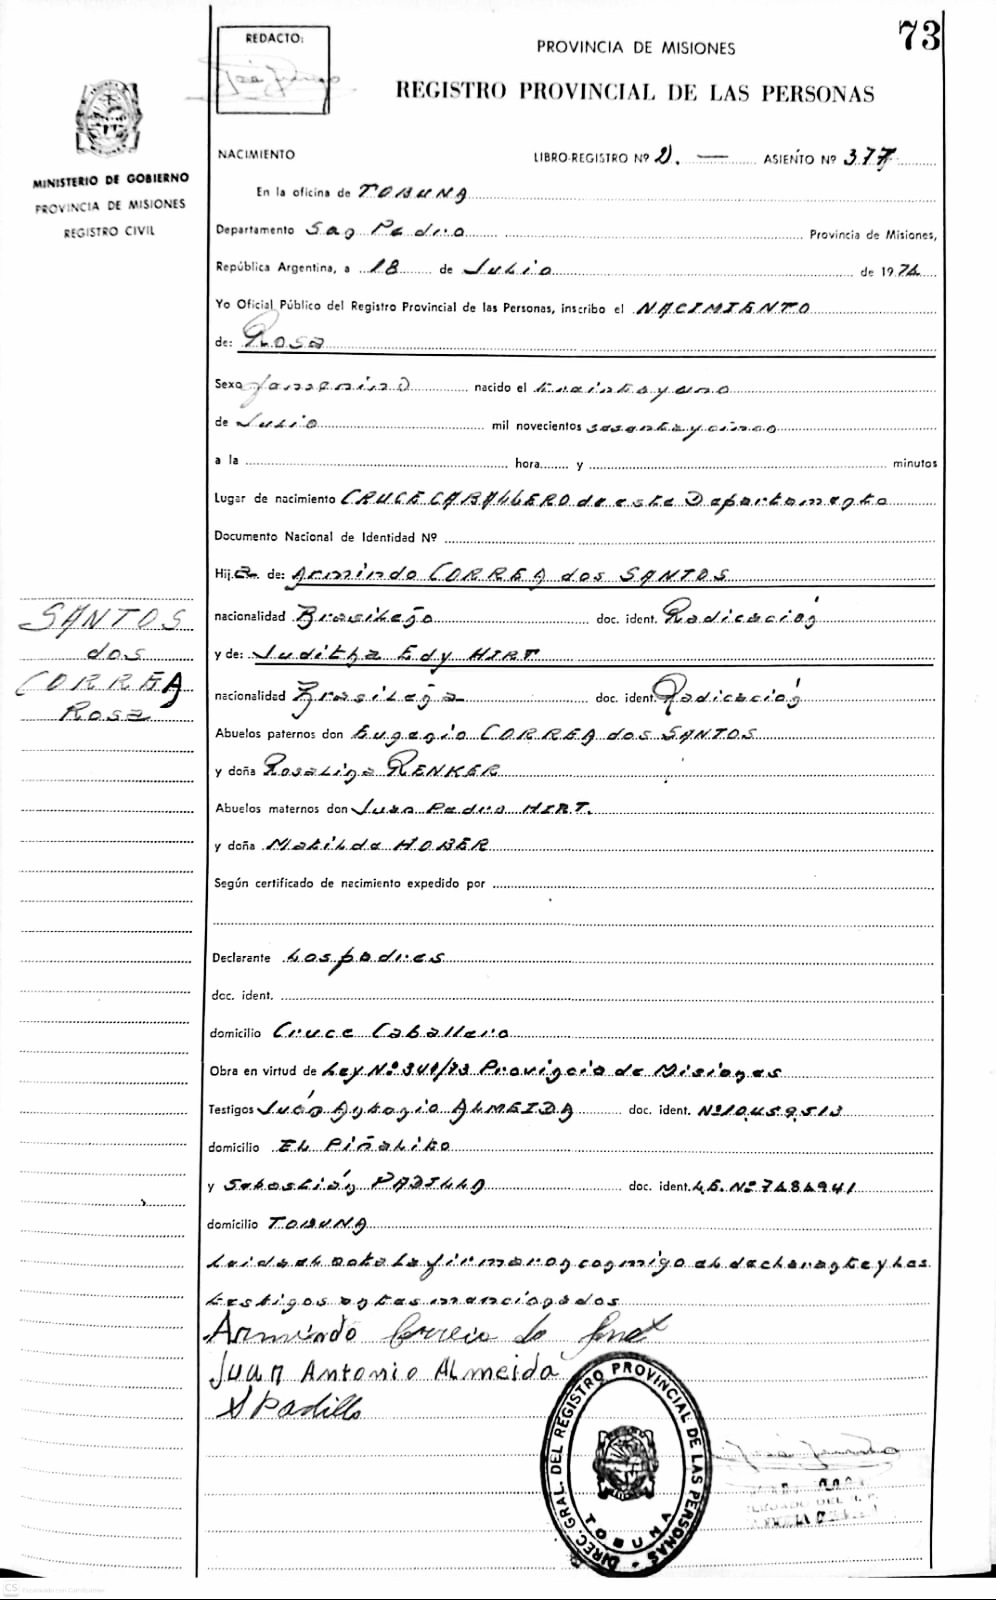 REDACTO:
73
PROVINCIA DE MISIONES
REGISTRO PROVINCIAL DE LAS PERSONAS
MINISTERIO DE GOBIERNO
PROVINCIA DE MISIONES
REGISTRO CIVIL
NACIMIENTO LIBRO-REGISTRO Nº D. — ASIENTO Nº 377
En la oficina de TOBUNA
Departamento San Pedro Provincia de Misiones,
República Argentina, a 18 de Julio de 1974
Yo Oficial Público del Registro Provincial de las Personas, inscribo el NACIMIENTO
de: Rosa
Sexo femenino nacido el treinta y uno
de Julio mil novecientos sesenta y cinco
a la hora y minutos
Lugar de nacimiento CRUCE CABALLERO de este Departamento
Documento Nacional de Identidad Nº
Hija de: Armindo CORREA dos SANTOS
nacionalidad Brasileño doc. ident. Radicación
y de: Juditha Edy HIRT
nacionalidad Brasileña doc. ident. Radicación
Abuelos paternos don Eugenio CORREA dos SANTOS
y doña Rosalina RENKER
Abuelos maternos don Juan Pedro HIRT.
y doña Matilda HOBER
Según certificado de nacimiento expedido por
Declarante Los padres
doc. ident.
domicilio Cruce Caballero
Obra en virtud de Ley Nº 341/73 Provincia de Misiones
Testigos Juan Antonio ALMEIDA doc. ident. Nº 10.459.513
domicilio EL Piñalito
y Sebastián PADILLA doc. ident. L.E. Nº 7484941
domicilio TOBUNA
Leida el acta la firmaron conmigo el declarante y los
testigos antes mencionados
Armindo Correia do
Juan Antonio ALmeida
S Padilla
SANTOS
dos
CORREA
Rosa
DIREC. GRAL. DEL REGISTRO PROVINCIAL DE LAS PERSONAS
TOBUNA
CS Escaneado con CamScanner